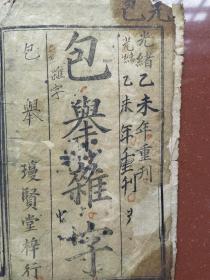 元包
光緒乙未年重刊
光緒乙未年重刊
包舉雜字
雜字
包舉
瓊賢堂梓行